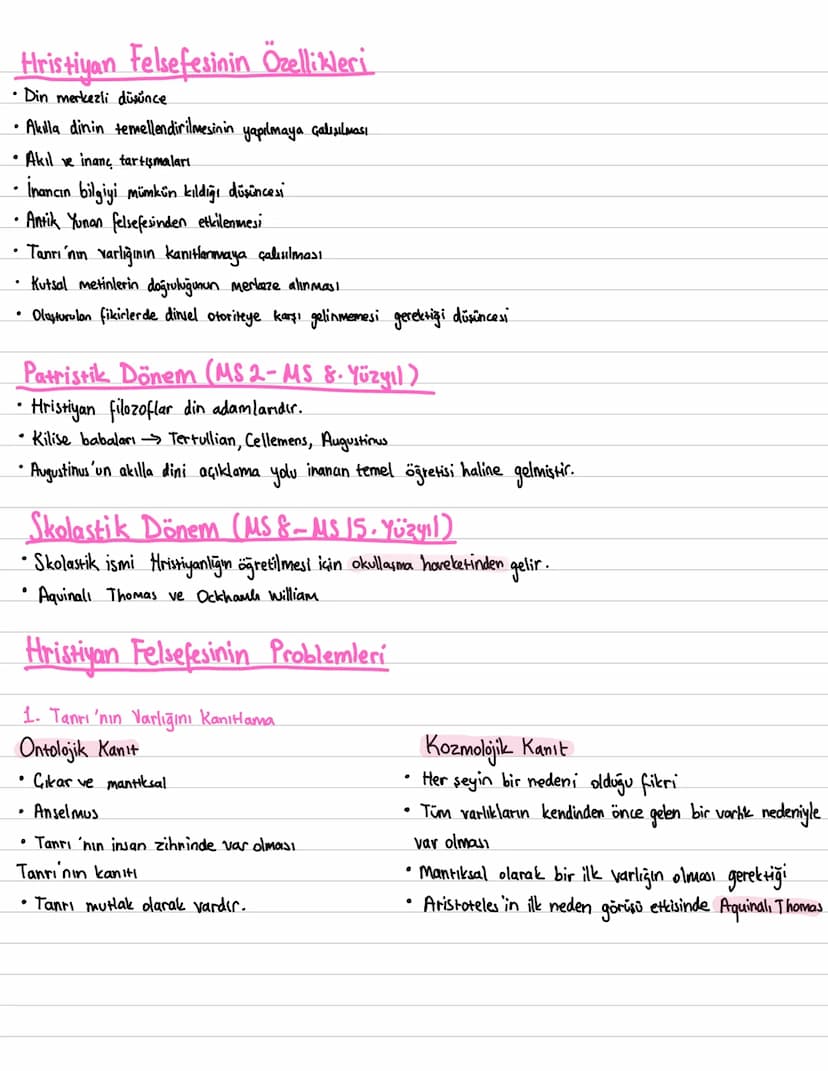 Hristiyan Felsefesinin Özellikleri
• Din merkezli düşünce
• Akılla dinin temellendirilmesinin yapılmaya çalışılması
• Akıl ve inanç tartışmaları
• İnancın bilgiyi mümkün kıldığı düşüncesi
• Antik Yunan felsefesinden etkilenmesi
• Tanrı'nın varlığının kanıtlanmaya çalışılması
• Kutsal metinlerin doğruluğunun merkeze alınması
• Oluşturulan fikirlerde dinsel otoriteye karşı gelinmemesi gerektiği düşüncesi
Patristik Dönem (MS 2 - MS 8. Yüzyıl)
• Hristiyan filozoflar din adamlarıdır.
• Kilise babaları → Tertullian, Cellemens, Augustinus
• Augustinus'un akılla dini açıklama yolu inanan temel öğretisi haline gelmiştir.
Skolastik Dönem (MS 8 - MS 15. Yüzyıl)
• Skolastik ismi Hristiyanlığın öğretilmesi için okullaşma hareketinden gelir.
• Aquinalı Thomas ve Ockhamlı William
Hristiyan Felsefesinin Problemleri
1. Tanrı'nın Varlığını Kanıtlama
Ontolojik Kanıt
• Çıkar ve mantıksal
• Anselmus
• Tanrı'nın insan zihninde var olması
Tanrı'nın kanıtı
• Tanrı mutlak olarak vardır.
Kozmolojik Kanıt
• Her şeyin bir nedeni olduğu fikri
• Tüm varlıkların kendinden önce gelen bir varlık nedeniyle
var olması
• Mantıksal olarak bir ilk varlığın olması gerektiği
• Aristoteles'in ilk neden görüşü etkisinde Aquinalı Thomas